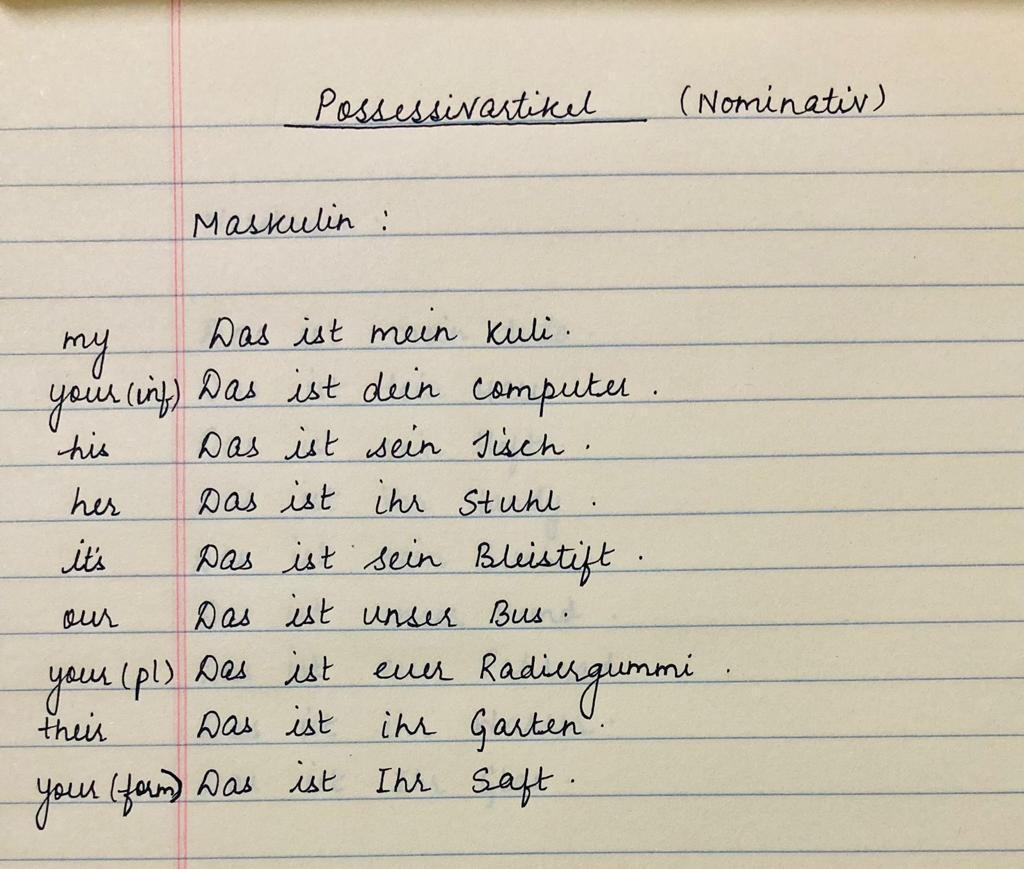 Possessivartikel (Nominativ)
Maskulin :
my Das ist mein Kuli.
your (inf) Das ist dein Computer.
his Das ist sein Tisch.
her Das ist ihr Stuhl.
it's Das ist sein Bleistift.
our Das ist unser Bus.
your (pl) Das ist euer Radiergummi.
their Das ist ihr Garten.
your (form) Das ist Ihr Saft.